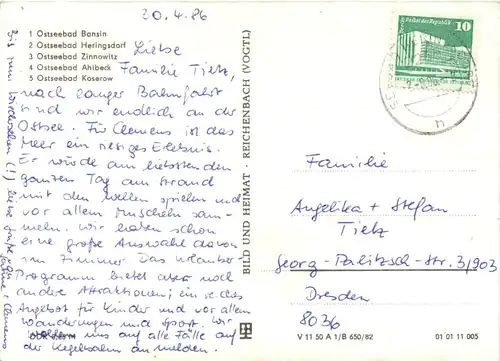 20.4.86
1 Ostseebad Bansin
2 Ostseebad Heringsdorf
3 Ostseebad Zinnowitz
4 Ostseebad Ahlbeck
5 Ostseebad Koserow
Liebe
Familie Tietz,
nach langer Bahnfahrt
sind wir endlich an der
Ostsee. Für Clemens ist das
Meer ein riesiges Erlebnis.
Er würde am liebsten den
ganzen Tag am Strand
mit den Wellen spielen und
vor allem Muscheln sam-
meln. Wir haben schon
eine große Auswahl davon
im Zimmer. Das Urlauber-
Programm bietet aber noch
andere Attraktionen; ein reiches
Angebot für Kinder und vor allem
Wanderungen und Sport. Wir
wollen uns auf alle Fälle auf
der Kegelbahn anmelden.
Bis zum Wiedersehen (!) liebe Grüße
Clemens
BILD UND HEIMAT · REICHENBACH (VOGTL)
Palast der Republik
10
Familie
Angelika + Stefan
Tietz
Georg-Palitzsch-Str. 3/903
Dresden
8036
V 11 50 A 1/B 650/82
01 01 11 005